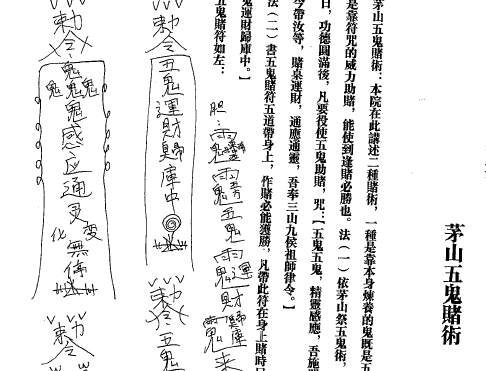 茅山五鬼賭術
茅山五鬼賭術:本院在此講述二種賭術,一種是靠本身煉養的鬼既是五
是靠符咒的威力助賭,能使到逢賭必勝也。法(一)依茅山祭五鬼術,
日,功德圓滿後,凡要役使五鬼助賭,咒:【五鬼五鬼,精靈感應,吾施
今帶汝等,賭桌運財,通應通靈,吾奉三山九侯祖師律令。】
法(二)書五鬼賭符五道帶身上,作賭必能獲勝,凡帶此符在身上賭時
鬼運財歸庫中。】
五鬼賭符如左:
胆:
五鬼
來
勅令五鬼運財歸庫中
勅令五鬼
勅令
鬼鬼鬼鬼鬼感应通灵変化無停
勅令